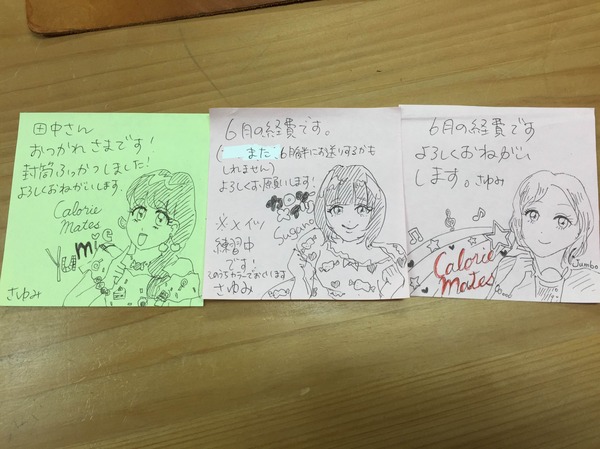 田中さん
おつかれさまです!
封筒ふっかつしました!
よろしくおねがいします。
Calorie
Mates
Yumi
さゆみ
6月の経費です。
(また、6月半にお送りするかも
しれません)
よろしくお願いします!
Sugar
※メイツ
練習中
です!
このうちカラーでおくります
さゆみ
6月の経費です
よろしくおねがい
します。さゆみ
Calorie
Mates
Jumbo